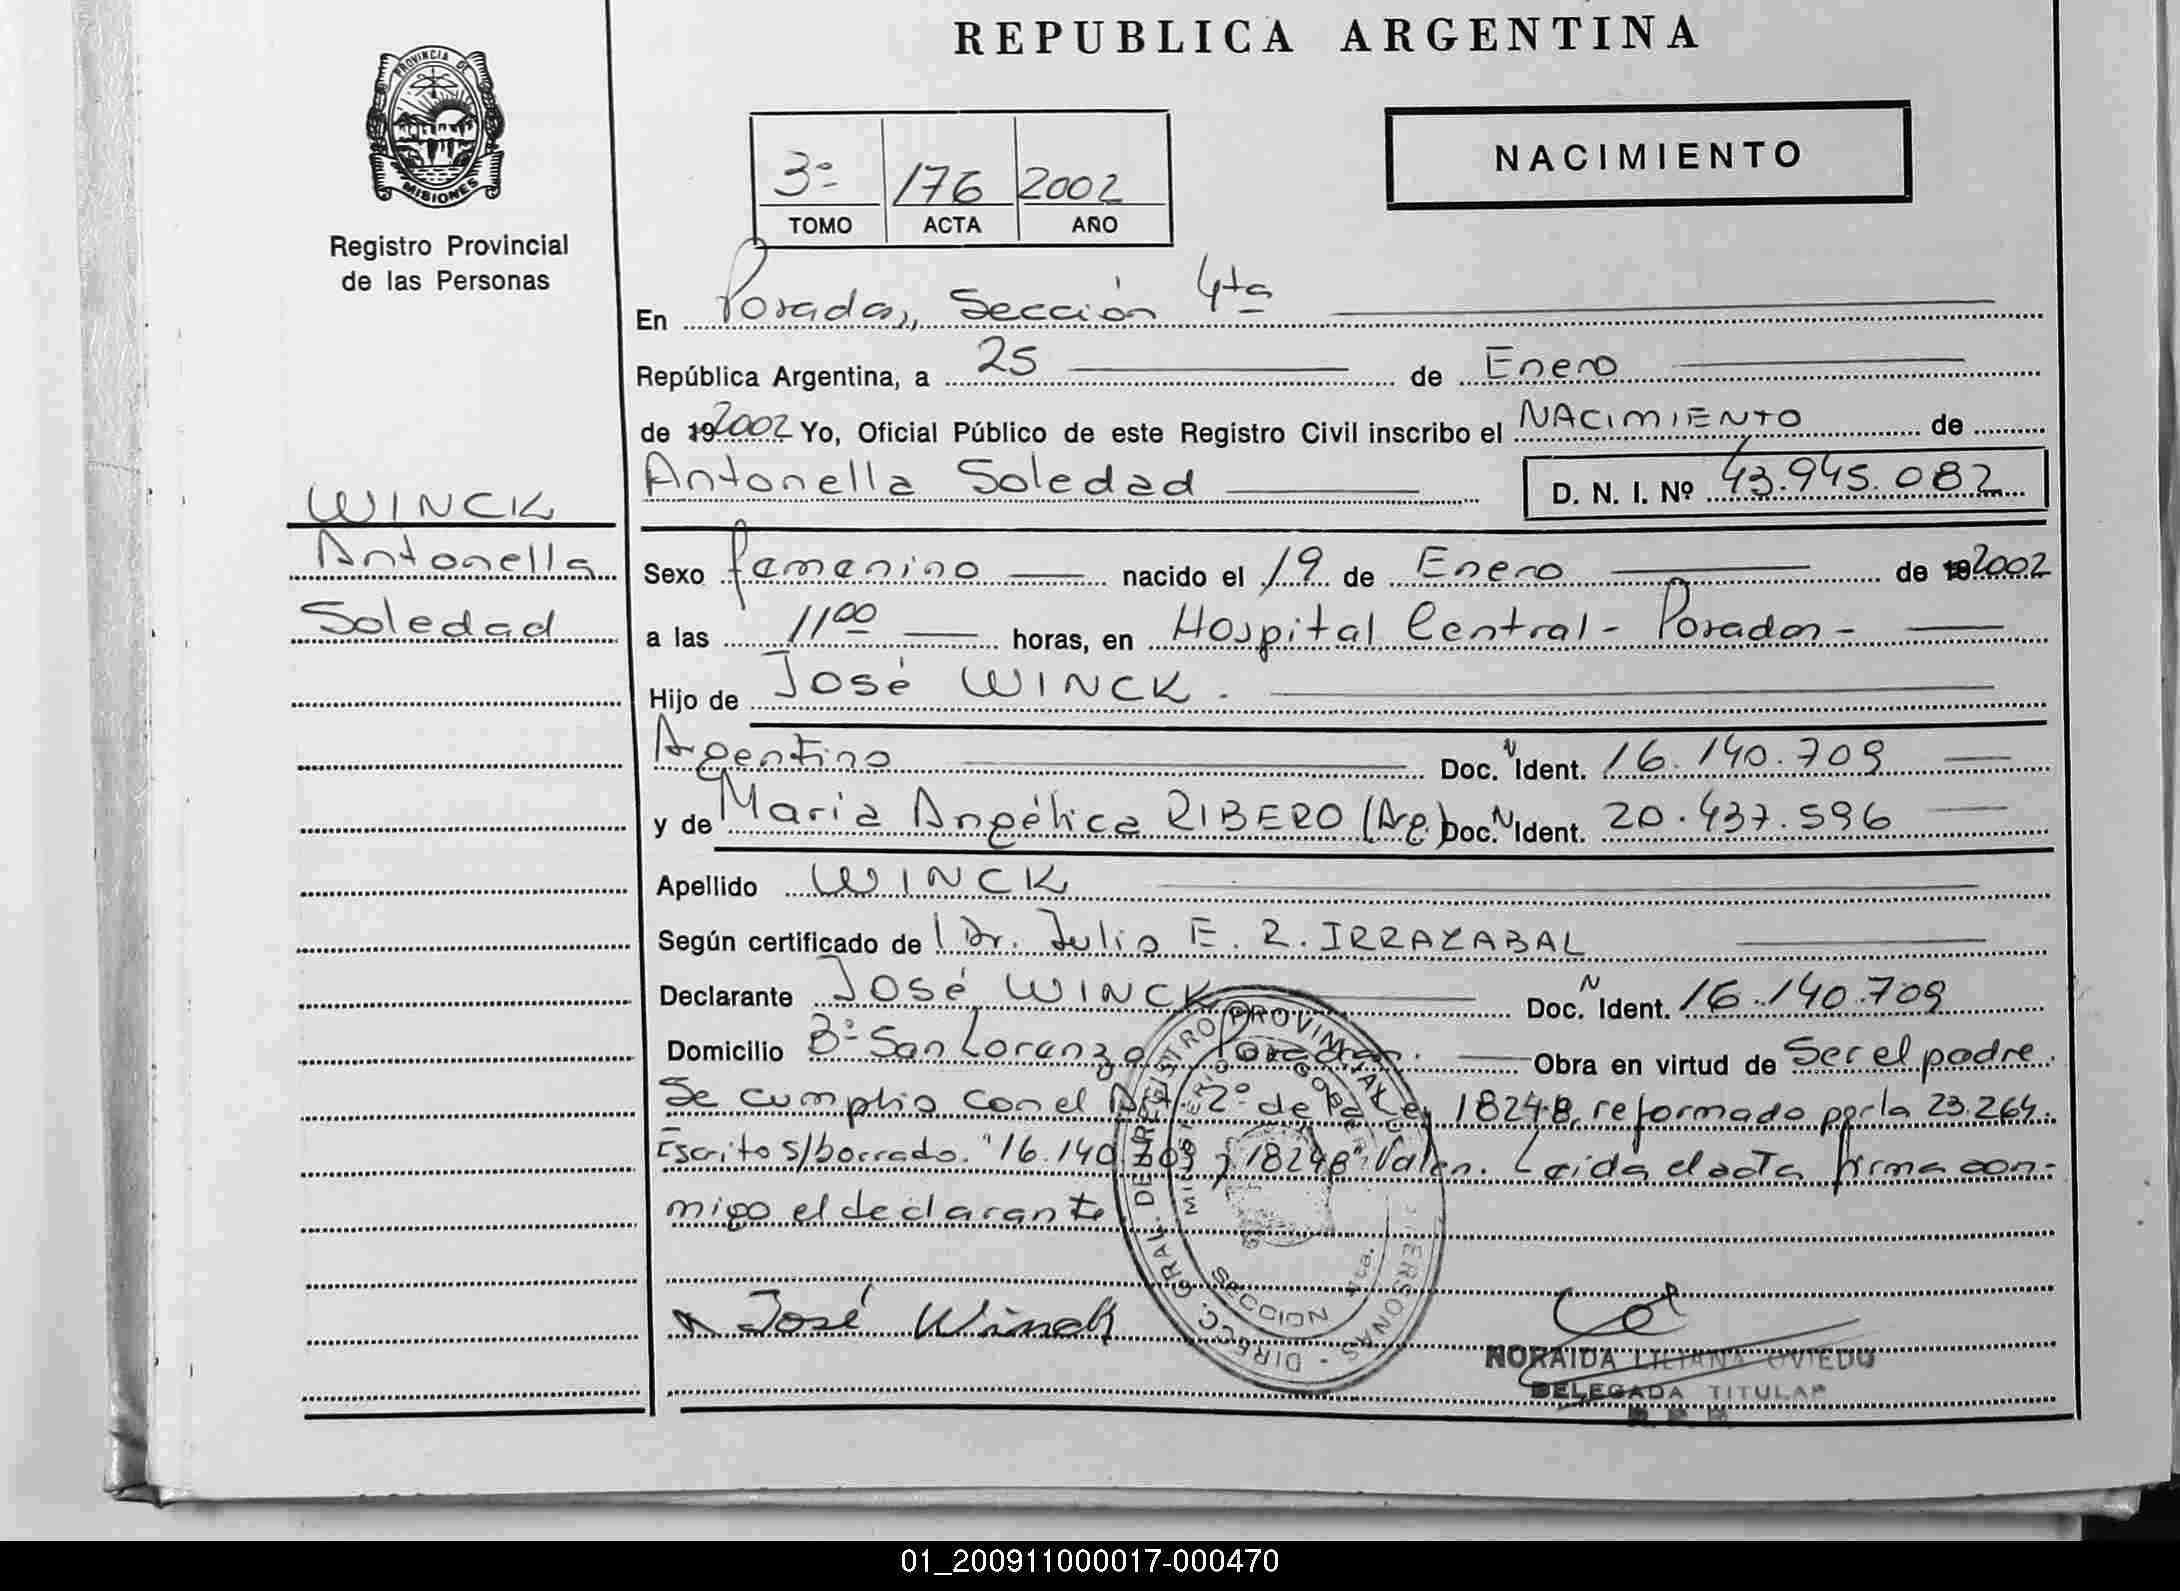 REPUBLICA ARGENTINA
PROVINCIA DE
MISIONES
Registro Provincial
de las Personas
NACIMIENTO
3º 176 2002
TOMO ACTA AÑO
En Posadas, Sección 4ta
República Argentina, a 25 de Enero
de 192002 Yo, Oficial Público de este Registro Civil inscribo el NACIMIENTO de
Antonella Soledad D. N. I. Nº 43.945.082
WINCK
Antonella
Soledad
Sexo femenino nacido el 19 de Enero de 192002
a las 11 00 horas, en Hospital Central - Posadas -
Hijo de José WINCK.
Argentino Doc. N Ident. 16.140.709
y de Maria Angélica RIBERO (Arg.) Doc. N Ident. 20.437.596
Apellido WINCK
Según certificado de l Dr. Julio E. R. IRRAZABAL
Declarante José WINCK Doc. N Ident. 16.140.709
Domicilio Bº San Lorenzo Posadas. Obra en virtud de Ser el padre.
Se cumplio con el Art. 2º de la Ley 18248, reformado por la 23.264.
Escrito s/borrado. "16.140.709 y 18248". Valen. Leida el acta firma con-
migo el declarante
José Winck
DIRECC. GRAL. DE REGISTRO PROVINCIAL PERSONAS
SECCION 4ta.
NORAIDA LILIANA OVIEDO
DELEGADA TITULAR
01_200911000017-000470